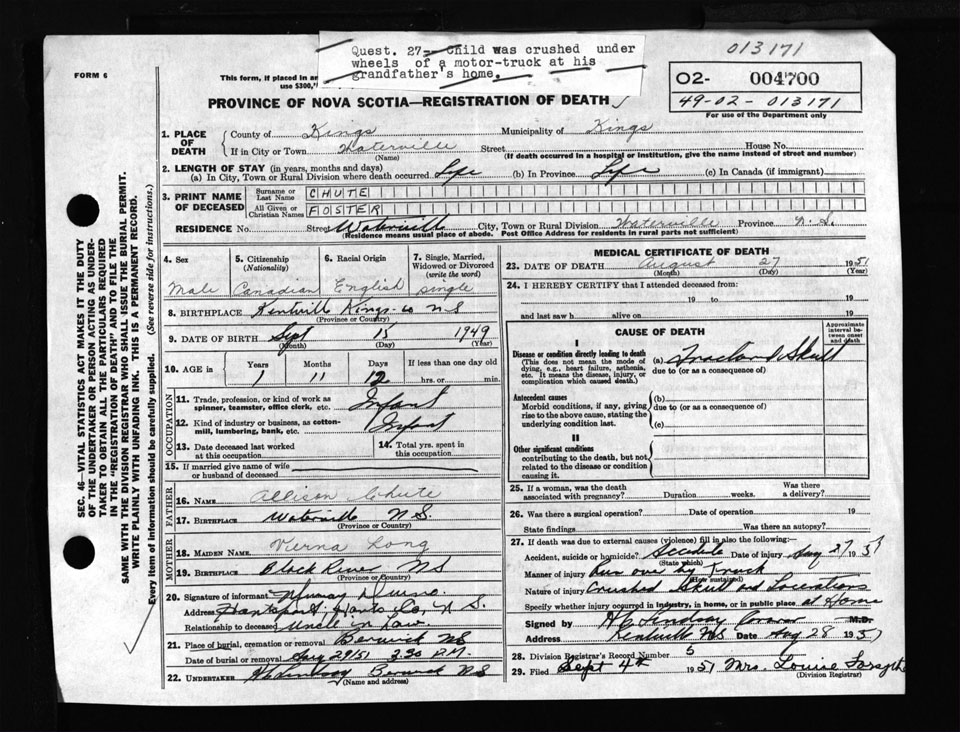 Quest. 27-- Child was crushed under
wheels of a motor-truck at his
grandfather's home.
013171
FORM 6
This form, if placed in an
use $300,
02- 004700
49-02-013171
For use of the Department only
PROVINCE OF NOVA SCOTIA—REGISTRATION OF DEATH
1. PLACE OF DEATH
County of Kings Municipality of Kings
If in City or Town Waterville Street House No.
(Name) (If death occurred in a hospital or institution, give the name instead of street and number)
2. LENGTH OF STAY (in years, months and days)
(a) In City, Town or Rural Division where death occurred Life (b) In Province Life (c) In Canada (if immigrant)
3. PRINT NAME OF DECEASED
Surname or Last Name CHUTE
All Given or Christian Names FOSTER
RESIDENCE No. Street Waterville City, Town or Rural Division Waterville Province N.S.
(Residence means usual place of abode. Post Office Address for residents in rural parts not sufficient)
4. Sex Male
5. Citizenship (Nationality) Canadian
6. Racial Origin English
7. Single, Married, Widowed or Divorced (write the word) single
8. BIRTHPLACE Kentville Kings-co NS
(Province or Country)
9. DATE OF BIRTH Sept 15 1949
(Month) (Day) (Year)
10. AGE in Years 1 Months 11 Days 12 If less than one day old hrs. or min.
OCCUPATION
11. Trade, profession, or kind of work as spinner, teamster, office clerk, etc. Infant
12. Kind of industry or business, as cotton-mill, lumbering, bank, etc. Infant
13. Date deceased last worked at this occupation
14. Total yrs. spent in this occupation
15. If married give name of wife or husband of deceased
FATHER
16. NAME Allison Chute
17. BIRTHPLACE Waterville N.S.
(Province or Country)
MOTHER
18. MAIDEN NAME Vierna Long
19. BIRTHPLACE Black River NS
(Province or Country)
20. Signature of informant Murray
Address Hantsport Hants Co, N.S.
Relationship to deceased Uncle in Law
21. Place of burial, cremation or removal Berwick NS
Date of burial or removal Aug 29/51 2.30 P.M.
22. UNDERTAKER Berwick NS
(Name and address)
MEDICAL CERTIFICATE OF DEATH
23. DATE OF DEATH August 27 1951
(Month) (Day) (Year)
24. I HEREBY CERTIFY that I attended deceased from:
19 to 19
and last saw h alive on 19
CAUSE OF DEATH
Approximate interval between onset and death
I
Disease or condition directly leading to death
(This does not mean the mode of dying, e.g., heart failure, asthenia, etc. It means the disease, injury, or complication which caused death.)
(a) Fractured Skull
due to (or as a consequence of)
Antecedent causes
Morbid conditions, if any, giving rise to the above cause, stating the underlying condition last.
(b)
due to (or as a consequence of)
(c)
II
Other significant conditions
contributing to the death, but not related to the disease or condition causing it.
25. If a woman, was the death associated with pregnancy? Duration weeks. Was there a delivery?
26. Was there a surgical operation? Date of operation 19
State findings Was there an autopsy?
27. If death was due to external causes (violence) fill in also the following:
Accident, suicide or homicide? Accident Date of injury Aug 27 1951
(State which)
Manner of injury Run over by Truck
(How sustained)
Nature of injury Crushed Skull and Lacerations
Specify whether injury occurred in industry, in home, or in public place at Home
Signed by M.D.
Address Kentville NS Date Aug 28 1951
28. Division Registrar's Record Number 5
29. Filed Sept 4th 1951 Mrs. Louise Forsythe
(Division Registrar)
SEC. 46—VITAL STATISTICS ACT MAKES IT THE DUTY
OF THE UNDERTAKER OR PERSON ACTING AS UNDER-
TAKER TO OBTAIN ALL THE PARTICULARS REQUIRED
IN THE "REGISTRATION OF DEATH" AND TO FILE THE
SAME WITH THE DIVISION REGISTRAR WHO SHALL ISSUE THE BURIAL PERMIT.
WRITE PLAINLY WITH UNFADING INK. THIS IS A PERMANENT RECORD.
Every item of information should be carefully supplied. (See reverse side for instructions.)